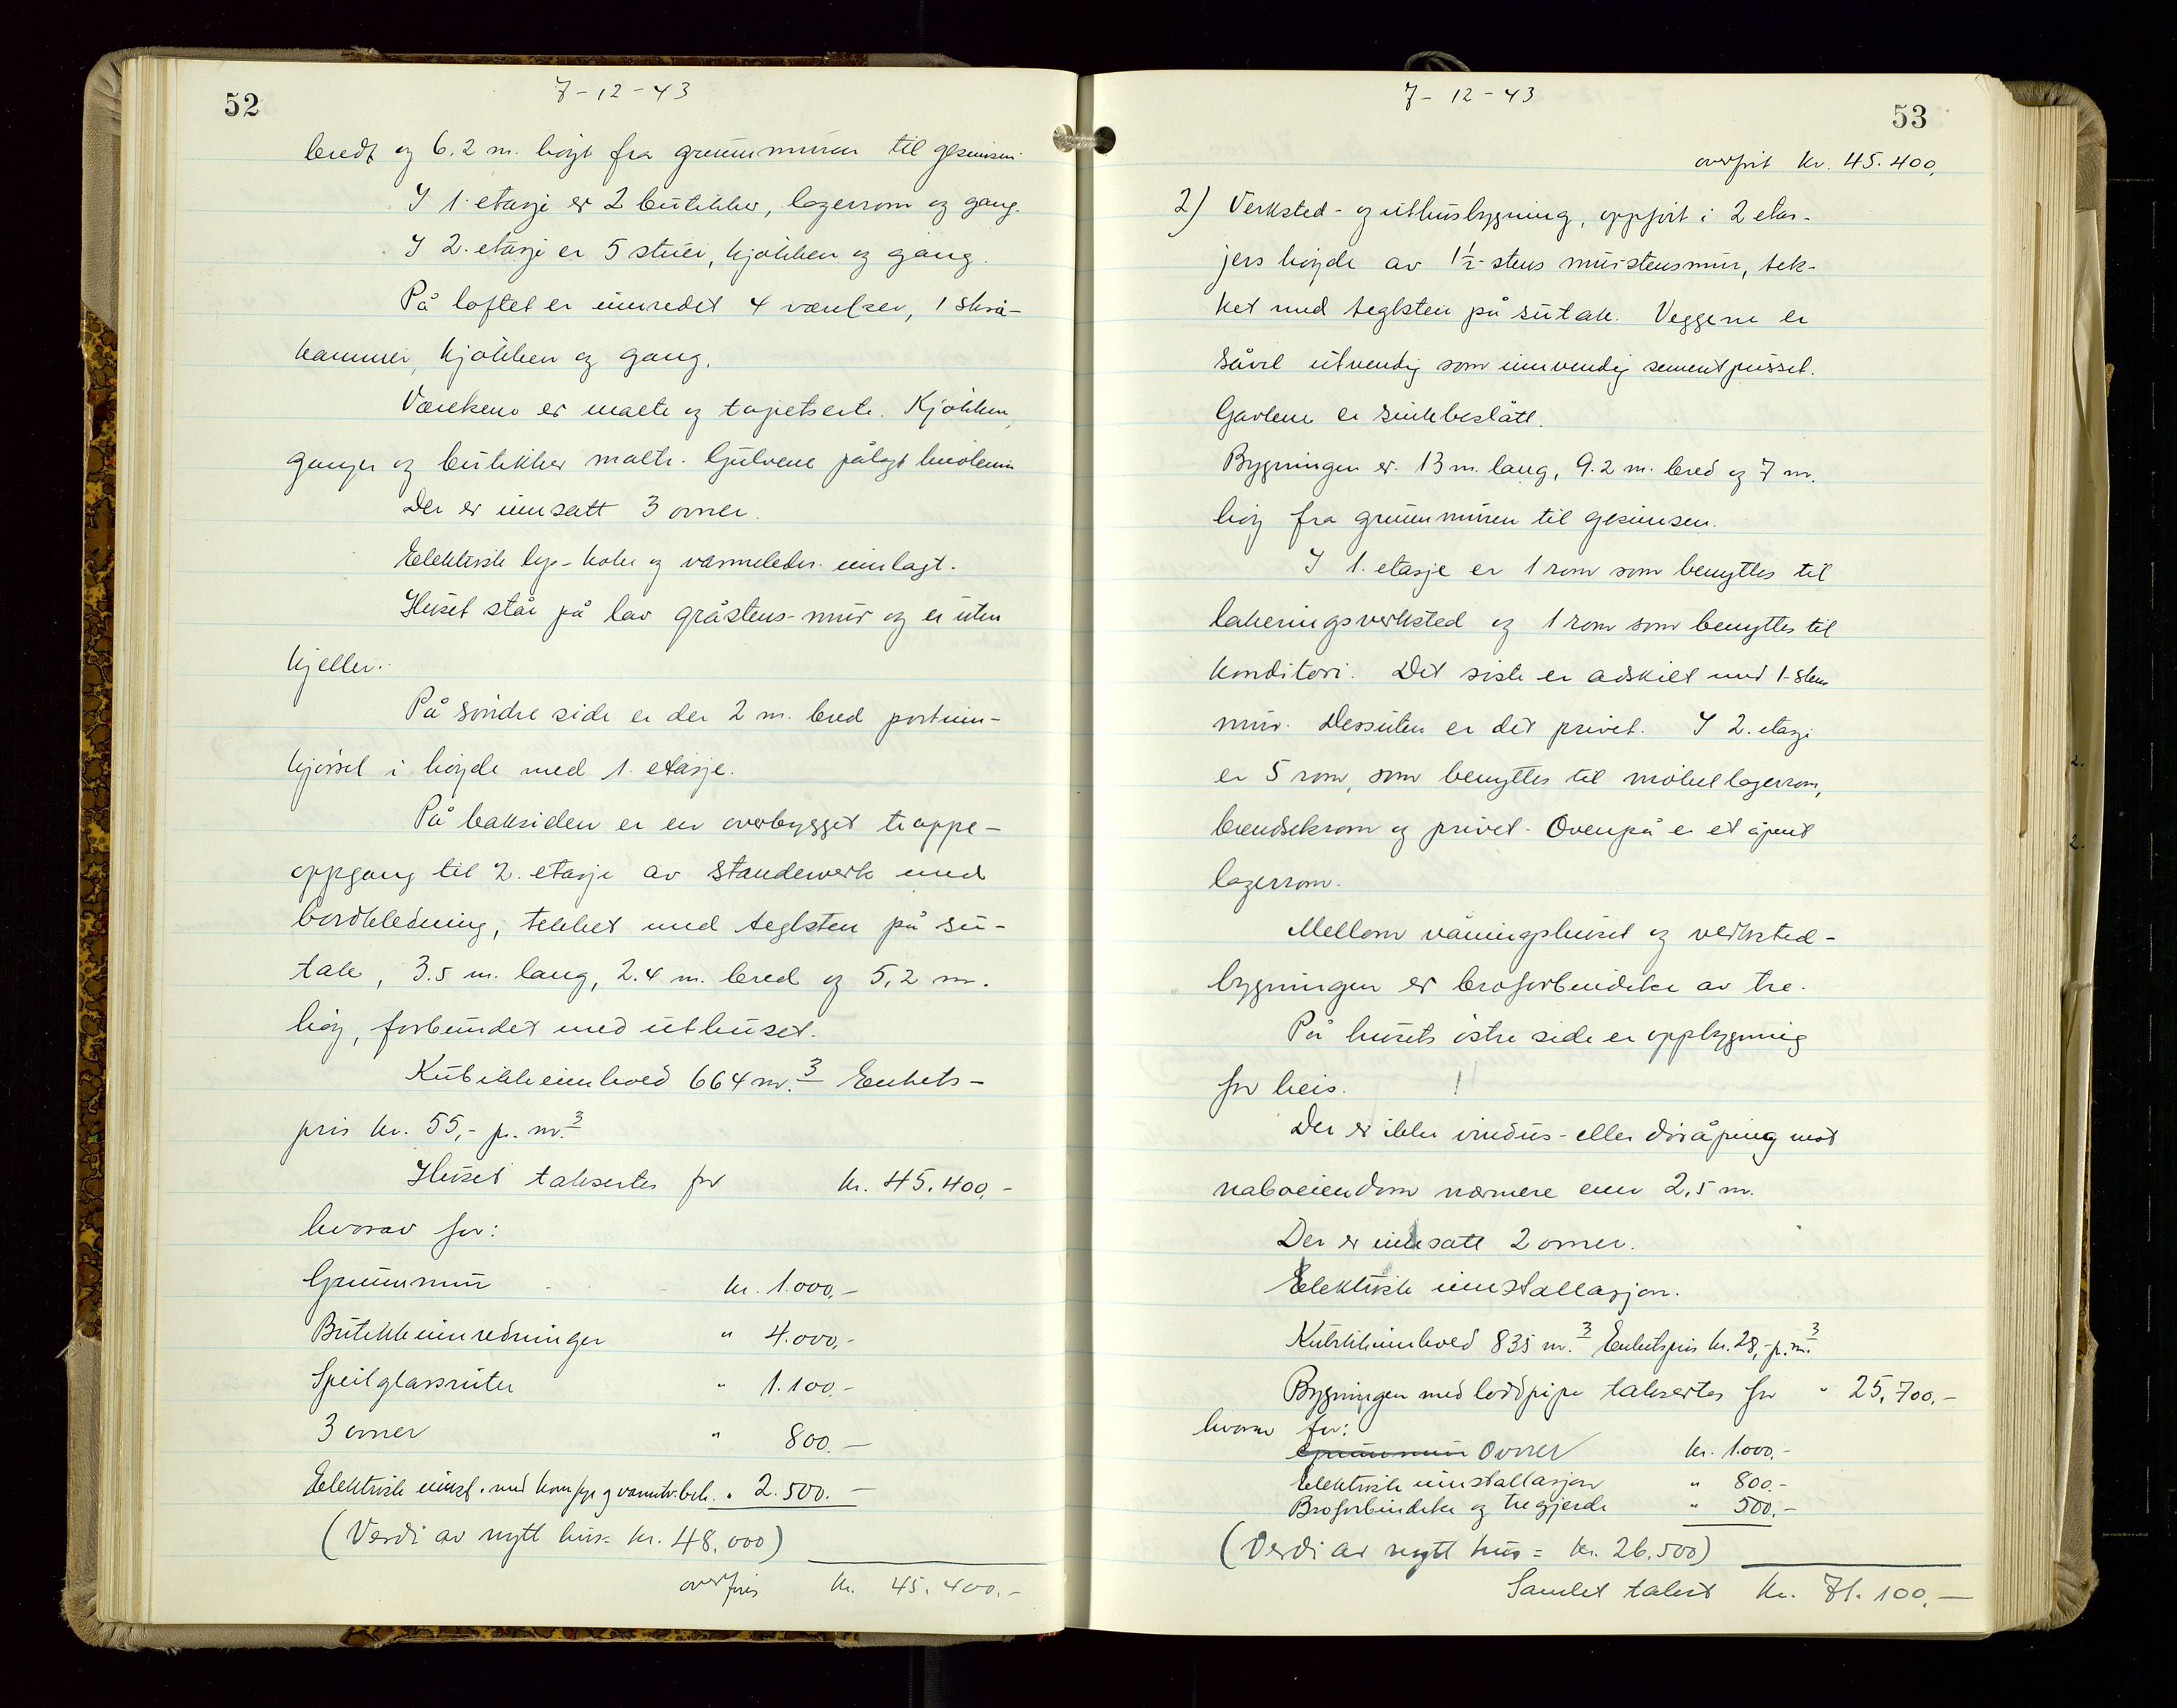 52
7-12-43
bredt og 6.2 m. høgt fra grunnmuren til gesimsen.
I 1. etasje er 2 butikker, lagerrom og gang.
I 2. etasje er 5 stuer, kjøkken og gang.
På loftet er innredet 4 værelser, 1 skrå-
kammer, kjøkken og gang.
Værelsene er malte og tapetserte. Kjøkken,
ganger og butikker malte. Gulvene pålagt linoleum
Der er innsatt 3 ovner.
Elektrisk lys- koke og varmeledn. innlagt.
Huset står på lav gråstens-mur og er uten
kjeller.
På søndre side er der 2 m. bred portinn-
kjørsel i høyde med 1. etasje.
På baksiden er en overbygget trappe-
oppgang til 2. etasje av standewerk med
bordkledning, tekket med teglsten på su-
tak, 3.5 m. lang, 2.4 m. bred og 5,2 m.
høg, forbundet med uthuset.
Kubikkinnhold 664 m.3 Enhets-
pris kr. 55,- pr. m.3
Huset takseres for kr. 45.400,-
hvorav for:
Grunnmur kr. 1.000,-
Butikkinnredninger " 4.000,-
Speilglassruter " 1.100,-
3 ovner " 800.-
Elektrisk innst. med komfyr og varmtv.beh. " 2.500.-
(Verdi av nytt hus = kr. 48.000)
overføres kr. 45.400.-
7-12-43
53
overført kr. 45.400,
2) Verksted- og uthusbygning, oppført i 2 etas-
jers høyde av 1 1/2-stens murstensmur, tek-
ket med teglsten på sutak. Veggene er
såvel utvendig som innvendig sementpusset.
Gavlene er sinkbeslått.
Bygningen er 13 m. lang, 9.2 m. bred og 7 m.
høg fra grunnmuren til gesimsen.
I 1. etasje er 1 rom som benyttes til
lakeringsverksted og 1 rom som benyttes til
konditori. Det siste er adskilt med 1-stens
mur. Dessuten er det privet. I 2. etasje
er 5 rom, som benyttes til møbellagerrom,
brendselsrom og privet. Ovenpå er et åpent
lagerrom.
Mellom våningshuset og verksted-
bygningen er broforbindelse av tre.
På husets østre side er oppbygning
for heis.
Der er ikke vindus- eller døråpning mot
naboeiendom nærmere enn 2,5 m.
Der er innsatt 2 ovner.
Elektrisk innstallasjon.
Kubikkinnhold 835 m.3 Enhetspris kr. 28,- p. m.3
Bygningen med loddpipe takseres for " 25,700.-
hvorav for:
Grunnmur Ovner kr. 1.000.-
Elektrisk innstallasjon " 800.-
Broforbindelse og tregjerde " 500.-
(Verdi av nytt hus = kr. 26.500)
Samlet takst kr. 71.100,-